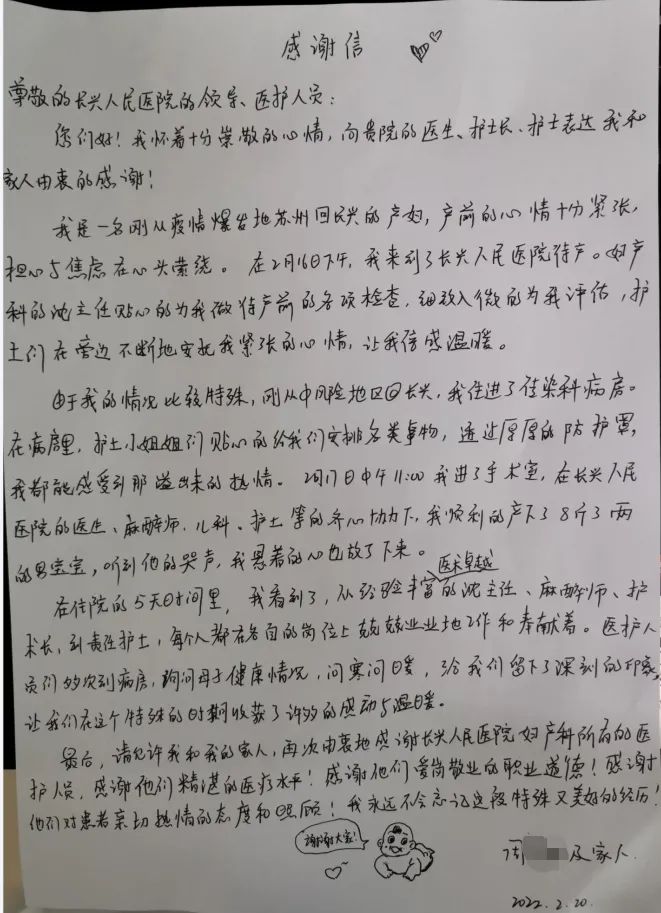 感谢信
尊敬的长兴人民医院的领导、医护人员：
您们好！我怀着十分崇敬的心情，向贵院的医生、护士长、护士表达我和
家人由衷的感谢！
我是一名刚从疫情爆发地苏州回长兴的产妇，产前的心情十分紧张，
担心与焦虑在心头萦绕。在2月16日下午，我来到了长兴人民医院待产。妇产
科的沈主任贴心的为我做待产前的各项检查，细致入微的为我评估，护
士们在旁边不断地安抚我紧张的心情，让我倍感温暖。
由于我的情况比较特殊，刚从中风险地区回长兴，我住进了传染科病房。
在病房里，护士小姐姐们贴心的给我们安排各类事物，透过厚厚的防护罩，
我都能感受到那溢出来的热情。2月17日中午11:00我进了手术室，在长兴人民
医院的医生、麻醉师、儿科、护士等的齐心协力下，我顺利的产下了8斤3两
的男宝宝，听到他的哭声，我悬着的心也放了下来。
医术卓越
在住院的5天时间里，我看到了，从经验丰富的沈主任、麻醉师、护
术长，到责任护士，每个人都在各自的岗位上兢兢业业地工作和奉献着。医护人
员们多次到病房，询问母子健康情况，问寒问暖，给我们留下了深刻的印象，
让我们在这个特殊的时期收获了许多的感动与温暖。
最后，请允许我和我的家人，再次由衷地感谢长兴人民医院妇产科所有的医
护人员，感谢他们精湛的医疗水平！感谢他们爱岗敬业的职业道德！感谢
他们对患者亲切热情的态度和照顾！我永远不会忘记这段特殊又美好的经历！
谢谢大家！
周 及家人
2022.2.20.